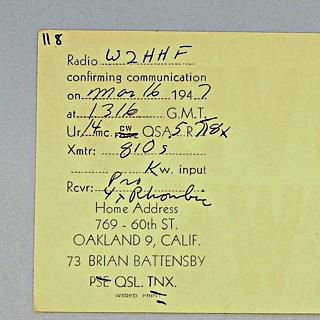 118
Radio W2HHF
confirming communication
on Mar 16 1947
at 1316 G.M.T.
Ur 14 mc. CW QSA 5 R
Xmtr: 810s
Kw. input
Rcvr: Pro
Rhombic
Home Address
769 - 60th ST.
OAKLAND 9, CALIF.
73 BRIAN BATTENSBY
PSE QSL. TNX.
WEDED PRINT